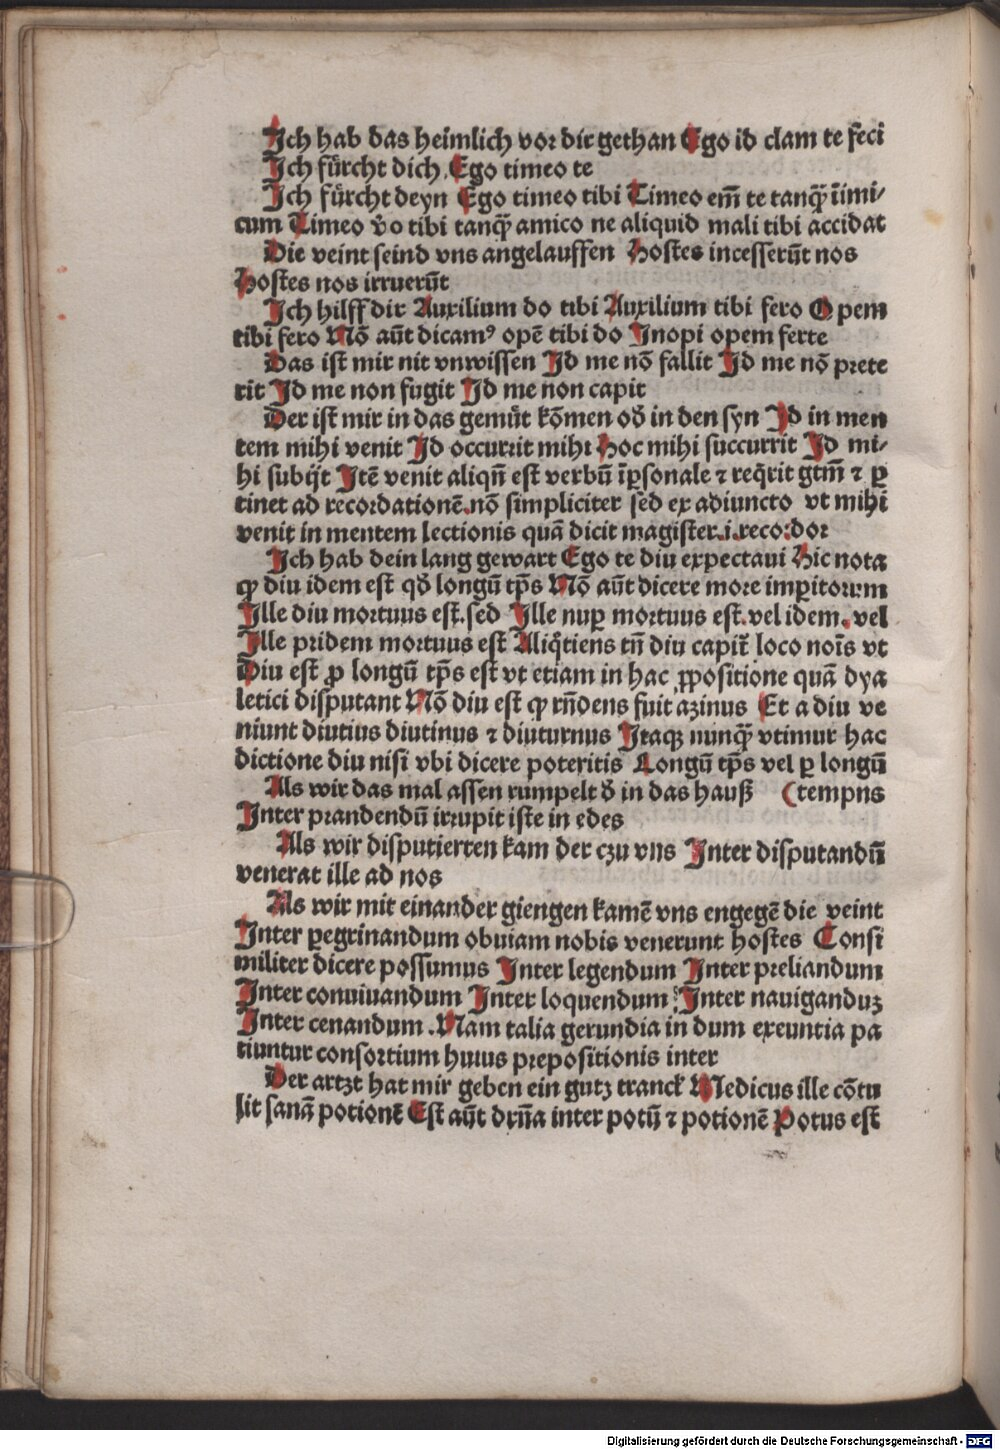 Ich hab das heimlich vor dir gethan Ego id clam te feci
Ich fürcht dich. Ego timeo te
Ich fürcht deyn Ego timeo tibi Timeo em̄ te tanq̄ᷓ īimi/
cum Timeo v̄o tibi tanq̄ᷓ amico ne aliquid mali tibi accidat
Die veint seind vns angelauffen Hostes incesserūt nos
Hostes nos irruerūt
Ich hilff dir Auxilium do tibi Auxilium tibi fero Opem
tibi fero Nō aūt dicamꝰ opē tibi do Inopi opem ferte
Das ist mir nit vnwissen Id me nō fallit Id me nō prete
rit Id me non fugit Id me non capit
Der ist mir in das gemüt kōmen oð in den syn Id in men
tem mihi venit Id occurrit mihi Hoc mihi succurrit Id mi/
hi subijt Itē venit aliqn̄ est verbū īꝑsonale ⁊ reqͥrit gtm̄ ⁊ ꝑ
tinet ad recordationē.nō simpliciter sed ex adiuncto vt mihi
venit in mentem lectionis quā dicit magister.i.reco:dor
Ich hab dein lang gewart Ego te diu expectaui Hic nota
ꝙ diu idem est qð longū tp̄s Nō aūt dicere more imꝑitorum
Ille diu mortuus est.sed Ille nuꝑ mortuus est.vel idem.vel
Ille pridem mortuus est Aliqͥtiens tn̄ diu capit̄ loco nois̄ vt
Diu est ꝓ longū tp̄s est vt etiam in hac ꝓpositione quā dya
letici disputant Nō diu est ꝙ rn̄dens fuit azinus Et a diu ve
niunt diutius diutinus ⁊ diuturnus Itaqꝫ nunq̄ᷓ vtimur hac
dictione diu nisi vbi dicere poteritis Longū tp̄s vel ꝑ longū
Als wir das mal assen rumpelt ð in das hauß (tempns
Inter prandendū irrupit iste in edes
Als wir disputierten kam der czu vns Inter disputandū
venerat ille ad nos
Als wir mit einander giengen kamē vns engegē die veint
Inter ꝑegrinandum obuiam nobis venerunt hostes Consi
militer dicere possumus Inter legendum Inter preliandum
Inter conuiuandum Inter loquendum Inter nauiganduꝫ
Inter cenandum .Nam talia gerundia in dum exeuntia pa
tiuntur consortium huius prepositionis inter
Der artzt hat mir geben ein gutz tranck Medicus ille cōtu
lit sanā potionē Est aūt drn̄a inter potū ⁊ potionē Potus est
Digitalisierung gefördert durch die Deutsche Forschungsgemeinschaft - DFG